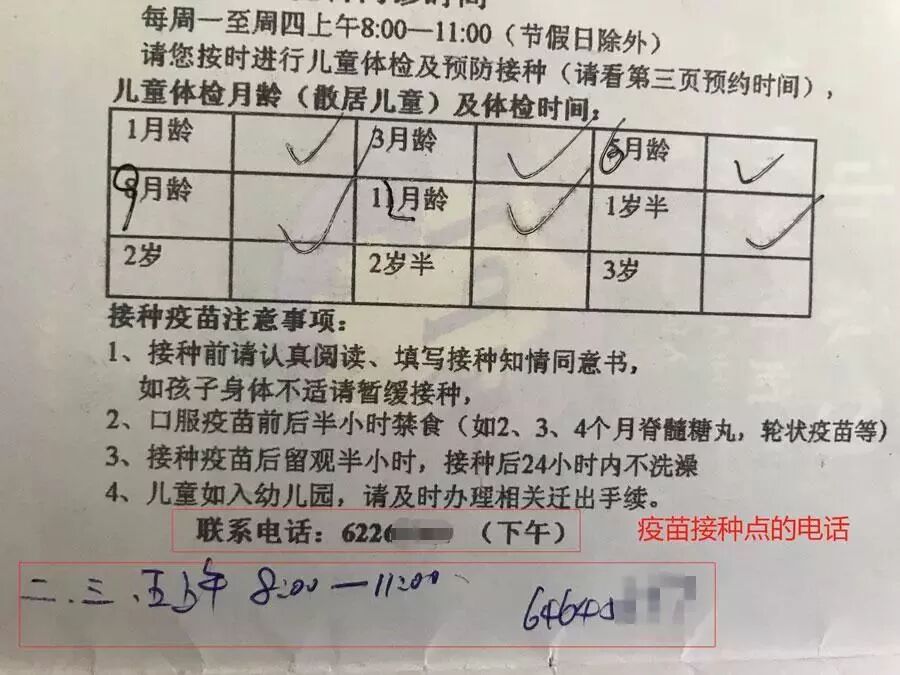 诊时间
每周一至周四上午8:00—11:00（节假日除外）
请您按时进行儿童体检及预防接种（请看第三页预约时间），
儿童体检月龄（散居儿童）及体检时间：
1月龄 ✓ 3月龄 ✓ 6月龄 ✓
9月龄 ✓ 12月龄 ✓ 1岁半 ✓
2岁 2岁半 3岁
接种疫苗注意事项：
1、接种前请认真阅读、填写接种知情同意书，
如孩子身体不适请暂缓接种，
2、口服疫苗前后半小时禁食（如2、3、4个月脊髓糖丸，轮状疫苗等）
3、接种疫苗后留观半小时，接种后24小时内不洗澡
4、儿童如入幼儿园，请及时办理相关迁出手续。
联系电话：6226 （下午）
疫苗接种点的电话
二.三.五上午 8:00—11:00
6464